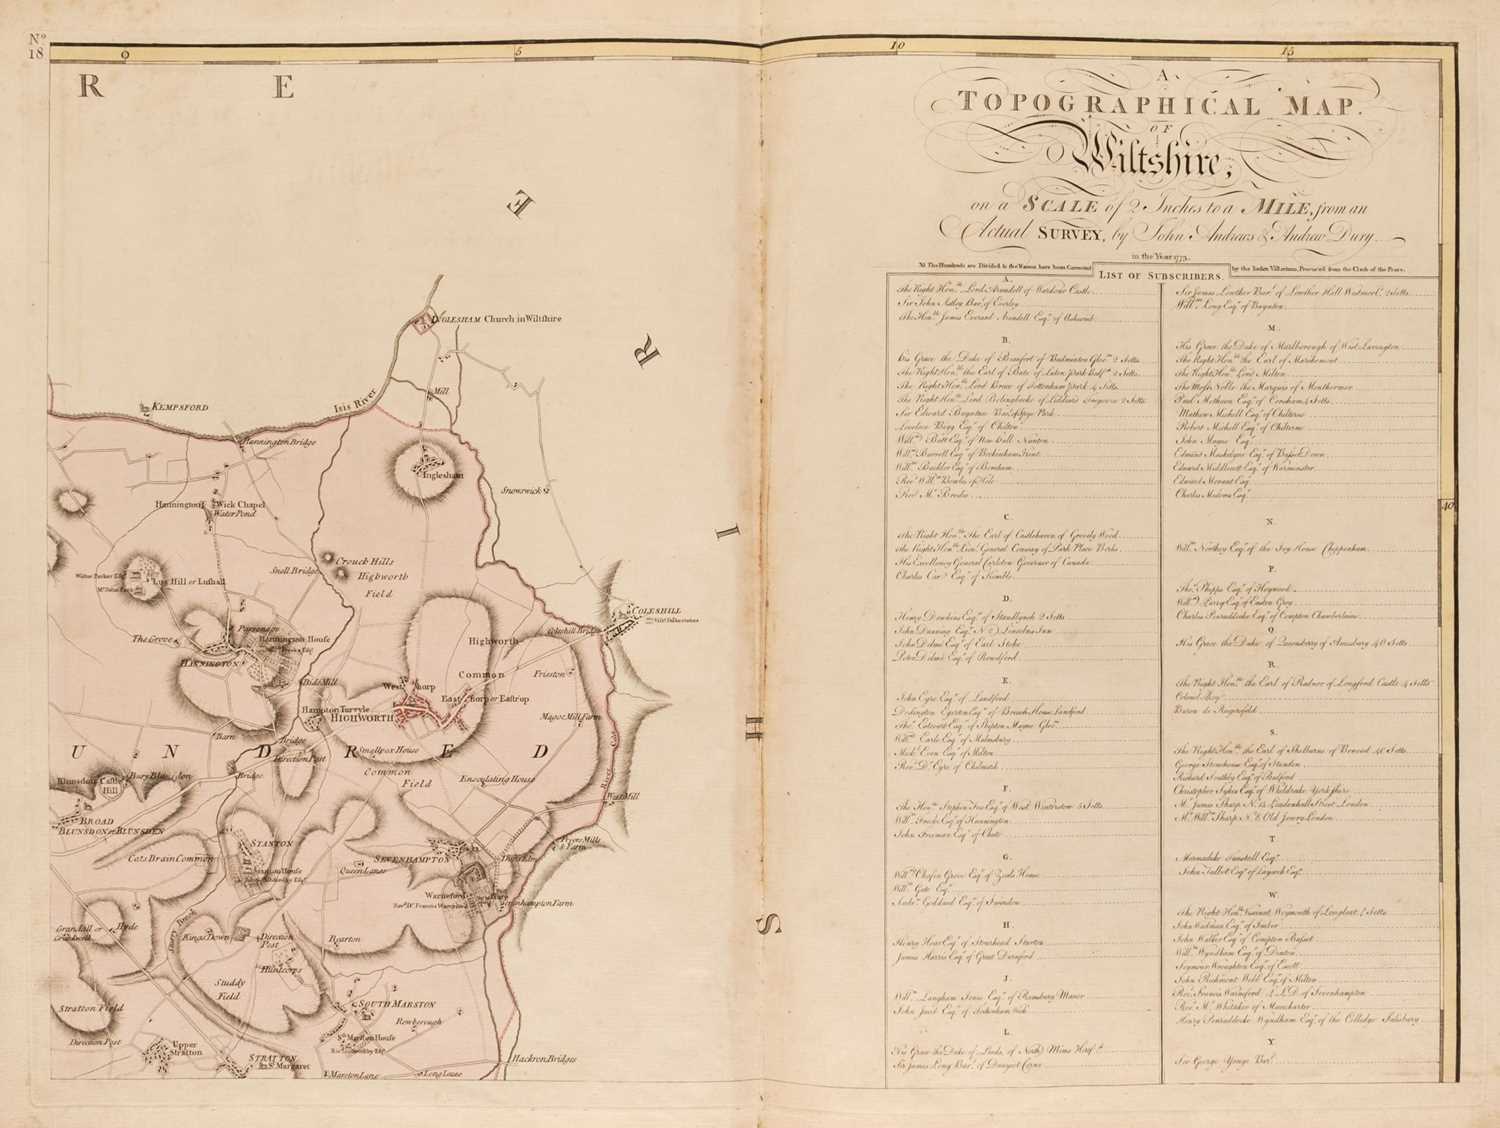 No.
18
0
5
10
15
40
R E
E
R
I
H
S
UNDRED
INGLESHAM Church in Wiltshire
Mill
Isis River
KEMPSFORD
Hannington Bridge
Inglesham
Snowswick
Hannington Wick Chapel
Water Pond
Crouch Hills
Snell Bridge
Highworth
Field
Lus Hill or Lushall
COLESHILL
Coleshill Bridge
Parsonage
The Grove
Hannington House
HANNINGTON
Highworth
Common
Friston
Bids Mill
West Thorp
East Thorp or Eastrop
Hampton Turvyle
HIGHWORTH
Magot Mill Farm
Barn
Bridge
Smallpox House
Direction Post
Common
Field
River Cole
Bridge
Enoculating House
Blunsdon Castle
Hill
Bury Blunsdon
West Mill
BROAD
BLUNSDON or BLUNSDEN
STANTON
Cats Brain Common
SEVENHAMPTON
Queen Lanes
Warneford Place
Revd. Dr. Francis Warneford
Hyde
Kings Down
Direction
Post
Rearton
Studdy
Field
SOUTH MARSTON
Rowborough
Stratton Field
Direction Post
Upper
Stratton
STRATTON
St. Margaret
Sth. Marston House
Marston Lane
Long Lease
Hackron Bridges
A
TOPOGRAPHICAL MAP.
OF
Wiltshire,
on a SCALE of 2 Inches to a MILE, from an
Actual SURVEY, by John Andrews & Andrew Dury
in the Year 1773.
NB The Hundreds are Divided in the Manner have been Corrected by the Index Villarium, Procured from the Clerk of the Peace.
LIST OF SUBSCRIBERS.
A.
The Right Honble. Lord Arundell of Wardour Castle
Sir John Astley Bart. of Everley
The Honble. James Everard Arundell Esqr. of Ashcomb
B.
His Grace the Duke of Beaufort of Badminton Glosr. 2 Setts
The Right Honble. the Earl of Bute of Luton Park Bedfre. 2 Setts
The Right Honble. Lord Bruce of Tottenham Park 4 Setts
The Right Honble. Lord Bolingbroke of Lidiard Tregooze 2 Setts
Sir Edward Baynton Bart. of Spye Park
Lovelace Bigg Esqr. of Chilton
Willm. Batt Esqr. of New Hall Nunton
Willm. Burrell Esqr. of Beckenham Kent
Willm. Buckler Esqr. of Boreham
Revd. Willm. Bowles of Hele
Revd. Mr. Brodie
C.
The Right Honble. The Earl of Castlehaven of Grovely Wood
The Right Honble. Lieut. General Conway of Park Place Berks
His Excellency General Carleton Governor of Canada
Charles Carr Esqr. of Kemble
D.
Henry Dawkins Esqr. of Standlynch 2 Setts
John Dunning Esqr. No. 2 Lincolns Inn
John Delme Esqr. of Earl Stoke
Peter Delmé Esqr. of Roundford
E.
John Eyre Esqr. of Landford
Dodington Egerton Esqr. of Breach House Landford
Thos. Estcourt Esqr. of Shipton Moyne Glosr.
Willm. Earle Esqr. of Malmsbury
Michl. Ewen Esqr. of Milton
Revd. Dr. Eyre of Chilmark
F.
The Honble. Stephen Fox Esqr. of West Winterslow 3 Setts
Willm. Freke Esqr. of Hannington
John Freeman Esqr. of Chute
G.
Willm. Chafin Grove Esqr. of Zeals House
Willm. Gate Esqr.
Ambr. Goddard Esqr. of Swindon
H.
Henry Hoar Esqr. of Stourhead Stourton
James Harris Esqr. of Great Durnford
J.
Willm. Langham Jones Esqr. of Ramsbury Manor
John Jacob Esqr. of Tottenham Wick
L.
His Grace the Duke of Leeds, of North Mims Hertf.
Sir James Long Bart. of Draycot Cerne
Sir James Lowther Bart. of Lowther Hall Westmord. 2 Setts
Willm. Long Esqr. of Baynton
M.
His Grace the Duke of Marlborough of West Lavington
The Right Honble. the Earl of Marchmont
The Right Honble. Lord Milton
The Most Noble the Marquis of Monthermer
Paul Methuen Esqr. of Corsham 4 Setts
Mathew Michell Esqr. of Chilterne
Robert Michell Esqr. of Chilterne
John Mayne Esqr.
Edmund Maskelyne Esqr. of Basset Down
Edward Middlecott Esqr. of Warminster
Edward Mervant Esqr.
Charles Medows Esqr.
N.
Willm. Northey Esqr. of the Ivy House Chippenham
P.
Thos. Phipps Esqr. of Heywood
Willm. Parry Esqr. of Easton Grey
Charles Penruddocke Esqr. of Compton Chamberlaine
Q
His Grace the Duke of Queensberry of Amesbury 40 Setts
R.
The Right Honble. the Earl of Radnor of Longford Castle 4 Setts
Colonel Roy
Baron de Rugersfeld
S.
The Right Honble. the Earl of Shelburne of Bowood 40 Setts
George Stonehouse Esqr. of Standen
Richard Southby Esqr. of Bulford
Christopher Sykes Esqr. of Wheldrake Yorkshire
Mr. James Sharp No. 15 Leadenhall Street London
Mr. Willm. Sharp No. 8 Old Jewry London
T.
Marmaduke Tunstall Esqr.
John Talbot Esqr. of Laycock Esqr.
W.
The Right Honble. Viscount Weymouth of Longleat 4 Setts
John Wadman Esqr. of Imber
John Walker Esqr. of Compton Basset
Willm. Wyndham Esqr. of Dinton
Seymour Wroughton Esqr. of Escott
John Richmond Webb Esqr. of Milton
Revd. Francis Warneford L.L.D. of Sevenhampton
Revd. Mr. Whitaker of Manchester
Henry Penruddocke Wyndham Esqr. of the Colledge Salisbury
Y.
Sir George Yonge Bart.